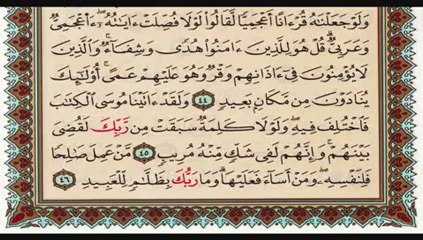 وَلَوْ جَعَلْنَٰهُ قُرْءَانًا أَعْجَمِيًّا لَّقَالُوا۟ لَوْلَا فُصِّلَتْ ءَايَٰتُهُۥٓ ۖ ءَا۬عْجَمِىٌّ
وَعَرَبِىٌّ ۗ قُلْ هُوَ لِلَّذِينَ ءَامَنُوا۟ هُدًى وَشِفَآءٌ ۖ وَٱلَّذِينَ
لَا يُؤْمِنُونَ فِىٓ ءَاذَانِهِمْ وَقْرٌ وَهُوَ عَلَيْهِمْ عَمًى ۚ أُو۟لَٰٓئِكَ
يُنَادَوْنَ مِن مَّكَانٍۭ بَعِيدٍ ٤٤ وَلَقَدْ ءَاتَيْنَا مُوسَى ٱلْكِتَٰبَ
فَٱخْتُلِفَ فِيهِ ۗ وَلَوْلَا كَلِمَةٌ سَبَقَتْ مِن رَّبِّكَ لَقُضِىَ
بَيْنَهُمْ ۚ وَإِنَّهُمْ لَفِى شَكٍّ مِّنْهُ مُرِيبٍ ٤٥ مَّنْ عَمِلَ صَٰلِحًا
فَلِنَفْسِهِۦ ۖ وَمَنْ أَسَآءَ فَعَلَيْهَا ۗ وَمَا رَبُّكَ بِظَلَّٰمٍ لِّلْعَبِيدِ ٤٦